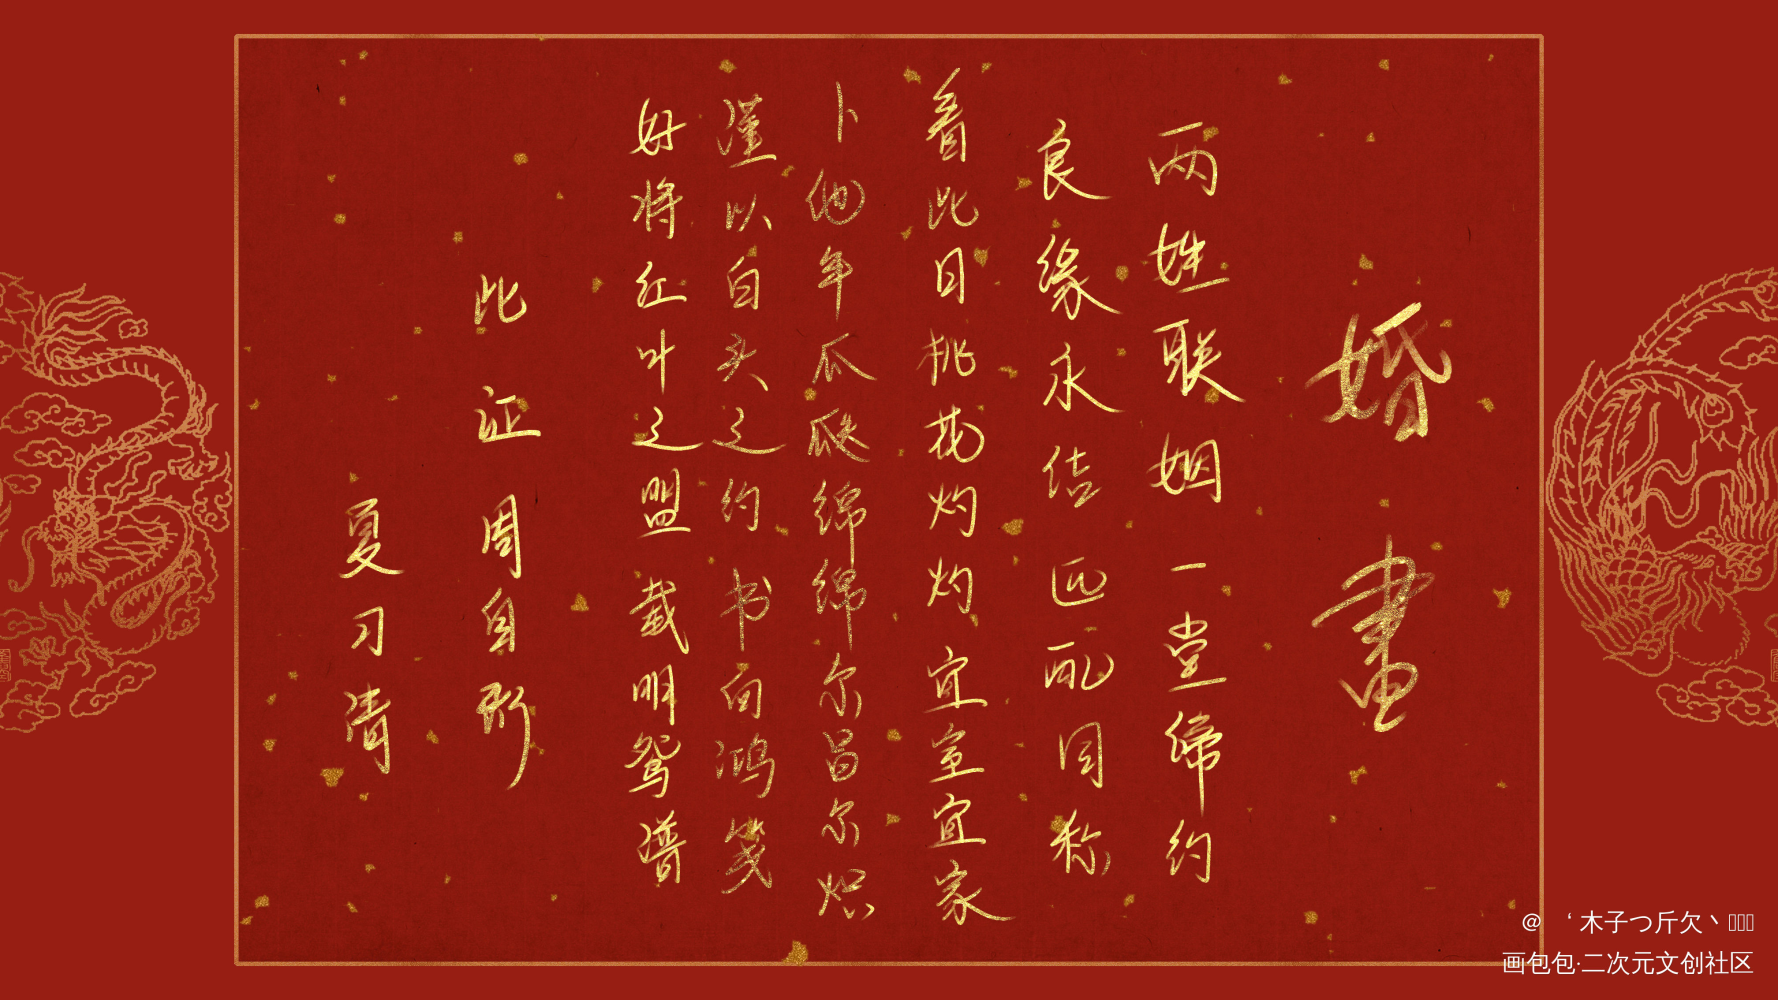 婚書
两姓联姻一堂缔约
良缘永结匹配同称
看此日桃花灼灼宜室宜家
卜他年瓜瓞绵绵尔昌尔炽
谨以白头之约书向鸿笺
好将红叶之盟载明鸳谱
此证周自珩
夏习清
@ ‘ 木子つ斤欠丶
画包包·二次元文创社区